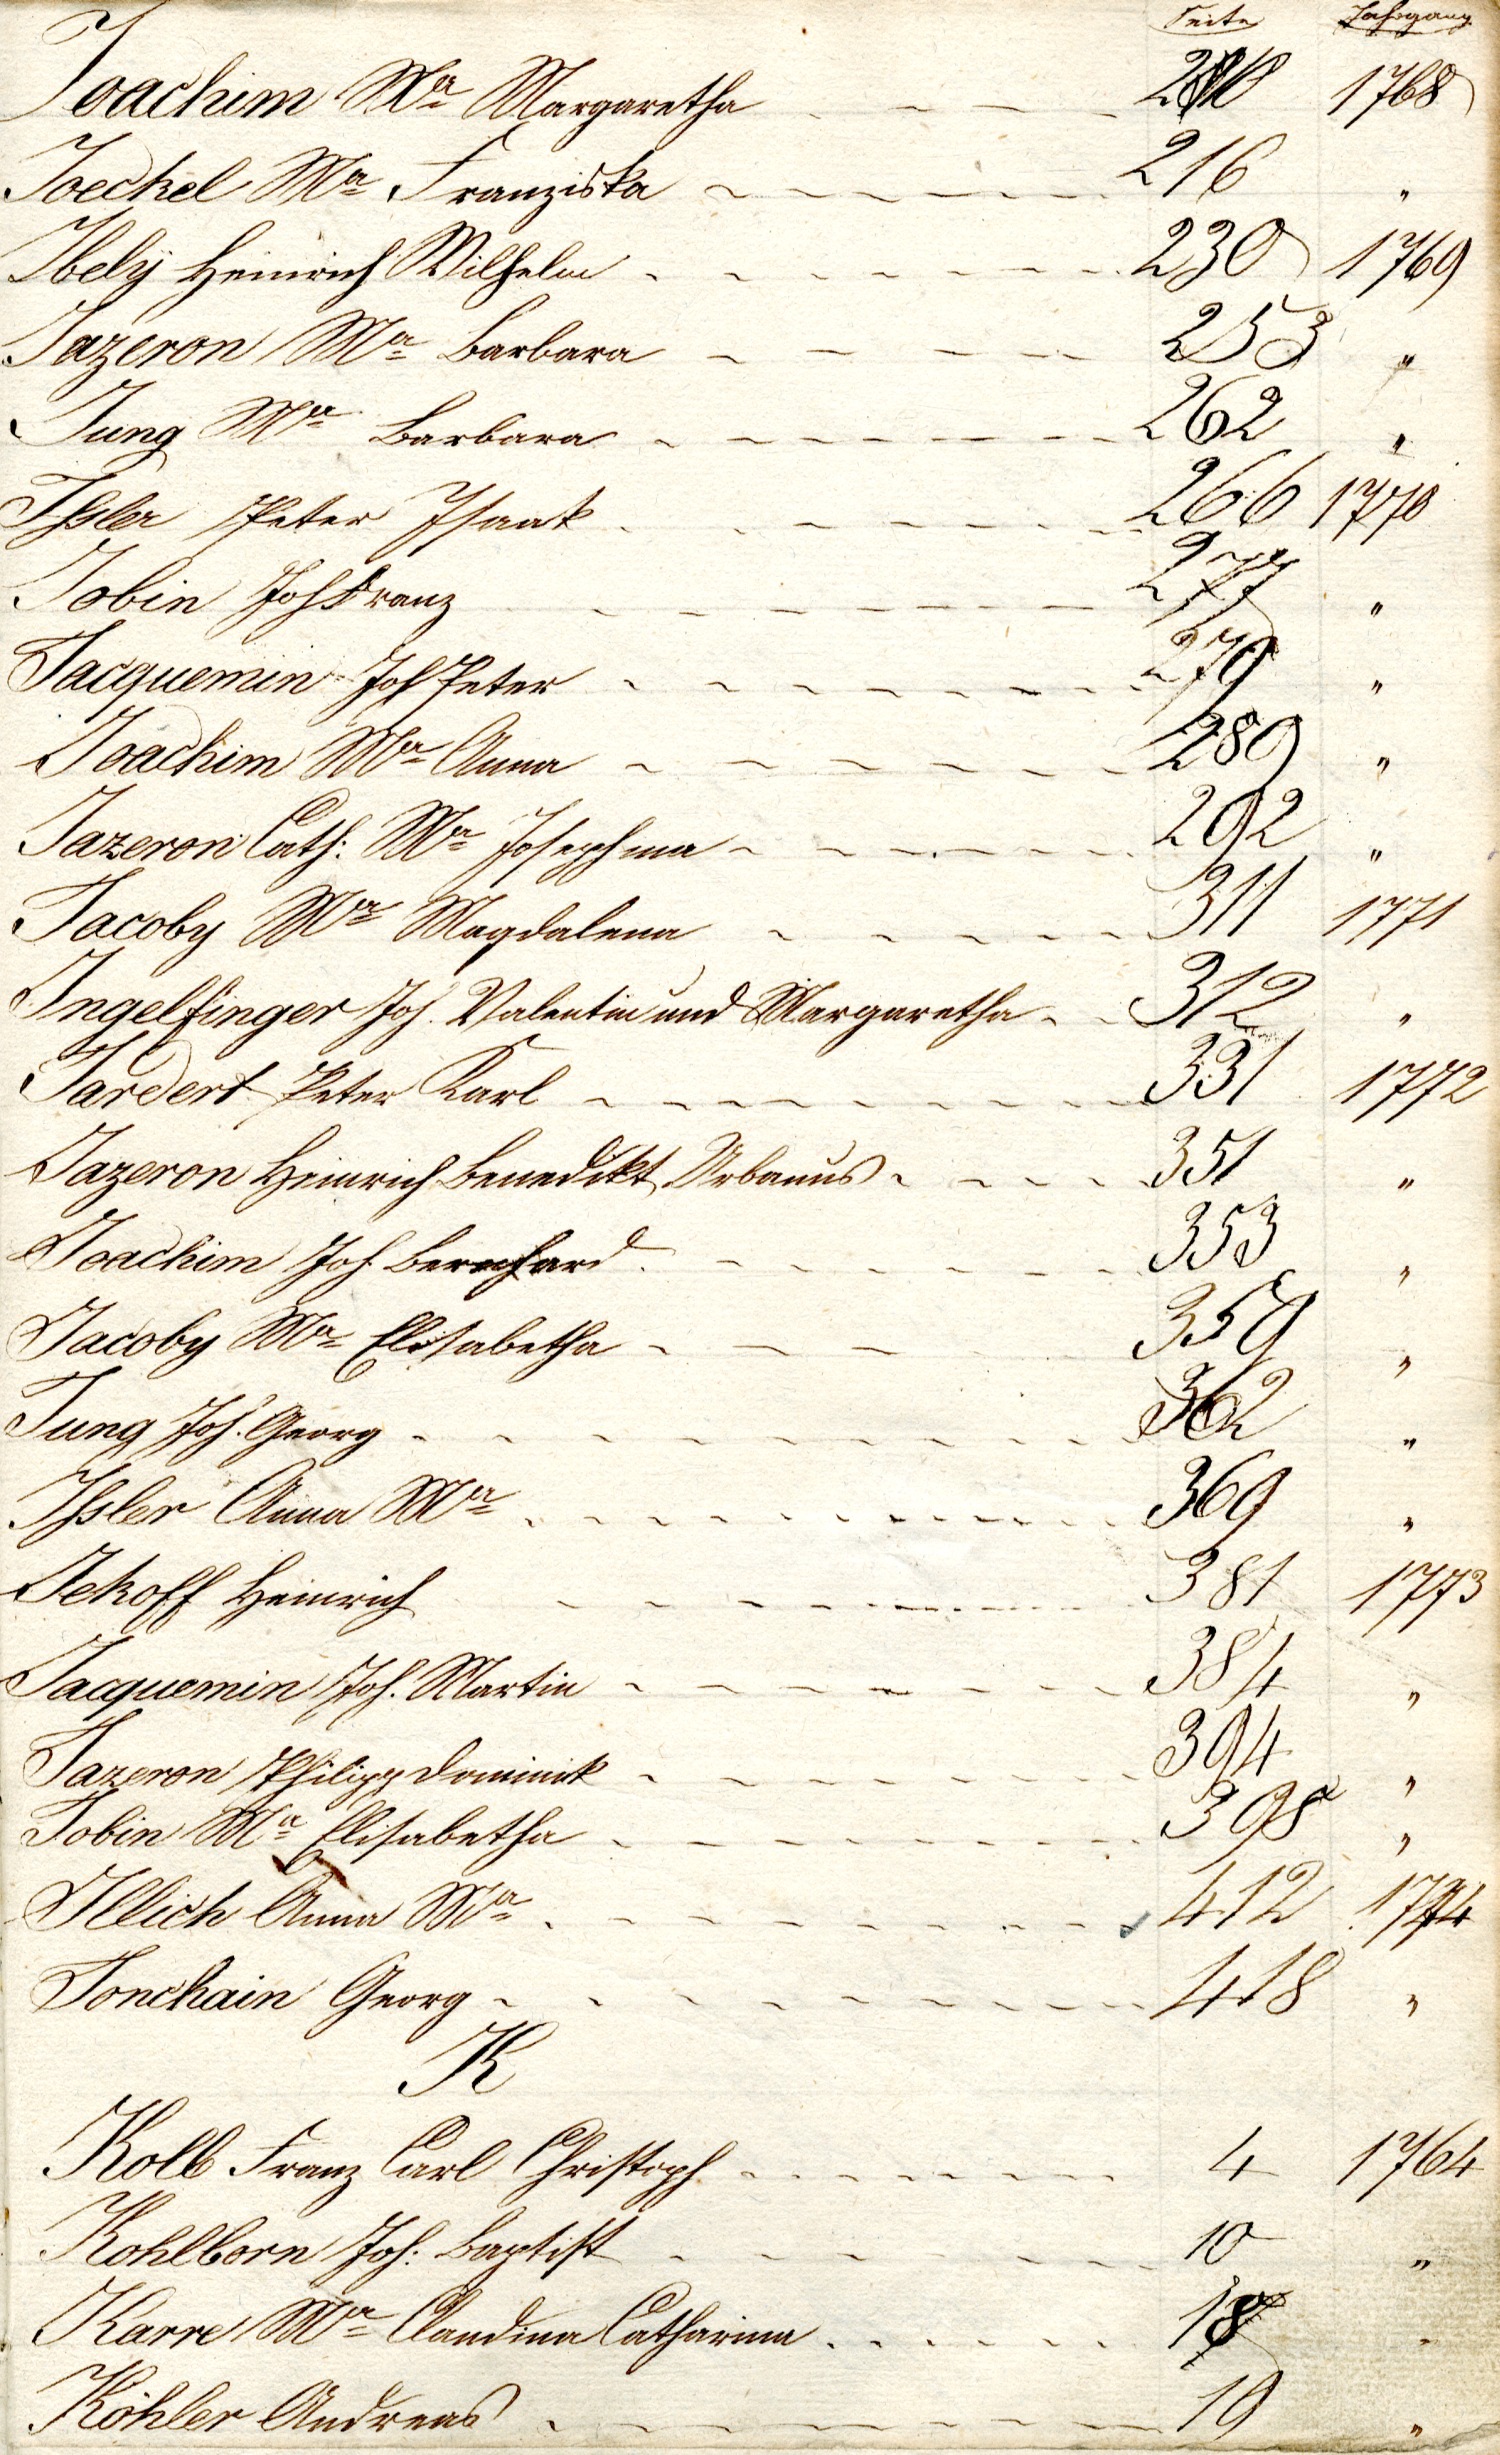 Seite Jahrgang
Joachim Ma Margaretha 210 1768
Joeckel Ma Franziska 216 "
Ibely Heinrich Wilhelm 230 1769
Jazeron Ma Barbara 253 "
Jung Ma Barbara 262 "
Ihsler Peter Isaak 266 1770
Jobin Joh Franz 277 "
Jacquemin Joh Peter 279 "
Joachim Ma Anna 289 "
Jazeron Cath: Ma Josephina 292 "
Jacoby Ma Magdalena 311 1771
Ingelfinger Joh. Valentin und Margaretha 312 "
Jardert Peter Karl 331 1772
Jazeron Heinrich Benedikt Urbanus 351 "
Joachim Joh. Bernhard 353 "
Jacoby Ma Elisabetha 359 "
Jung Joh. Georg 362 "
Ihsler Anna Ma 369 "
Jekoff Heinrich 381 1773
Jacquemin Joh. Martin 384 "
Jazeron Philipp Dominik 394 "
Jobin Ma Elisabetha 398 "
Illich Anna Ma 412 1774
Jonchain Georg 418 "
K
Kolb Franz Carl Christoph 4 1764
Kohlborn Joh: Baptist 10 "
Karre Ma Claudina Catharina 18 "
Köhler Andreas 19 "